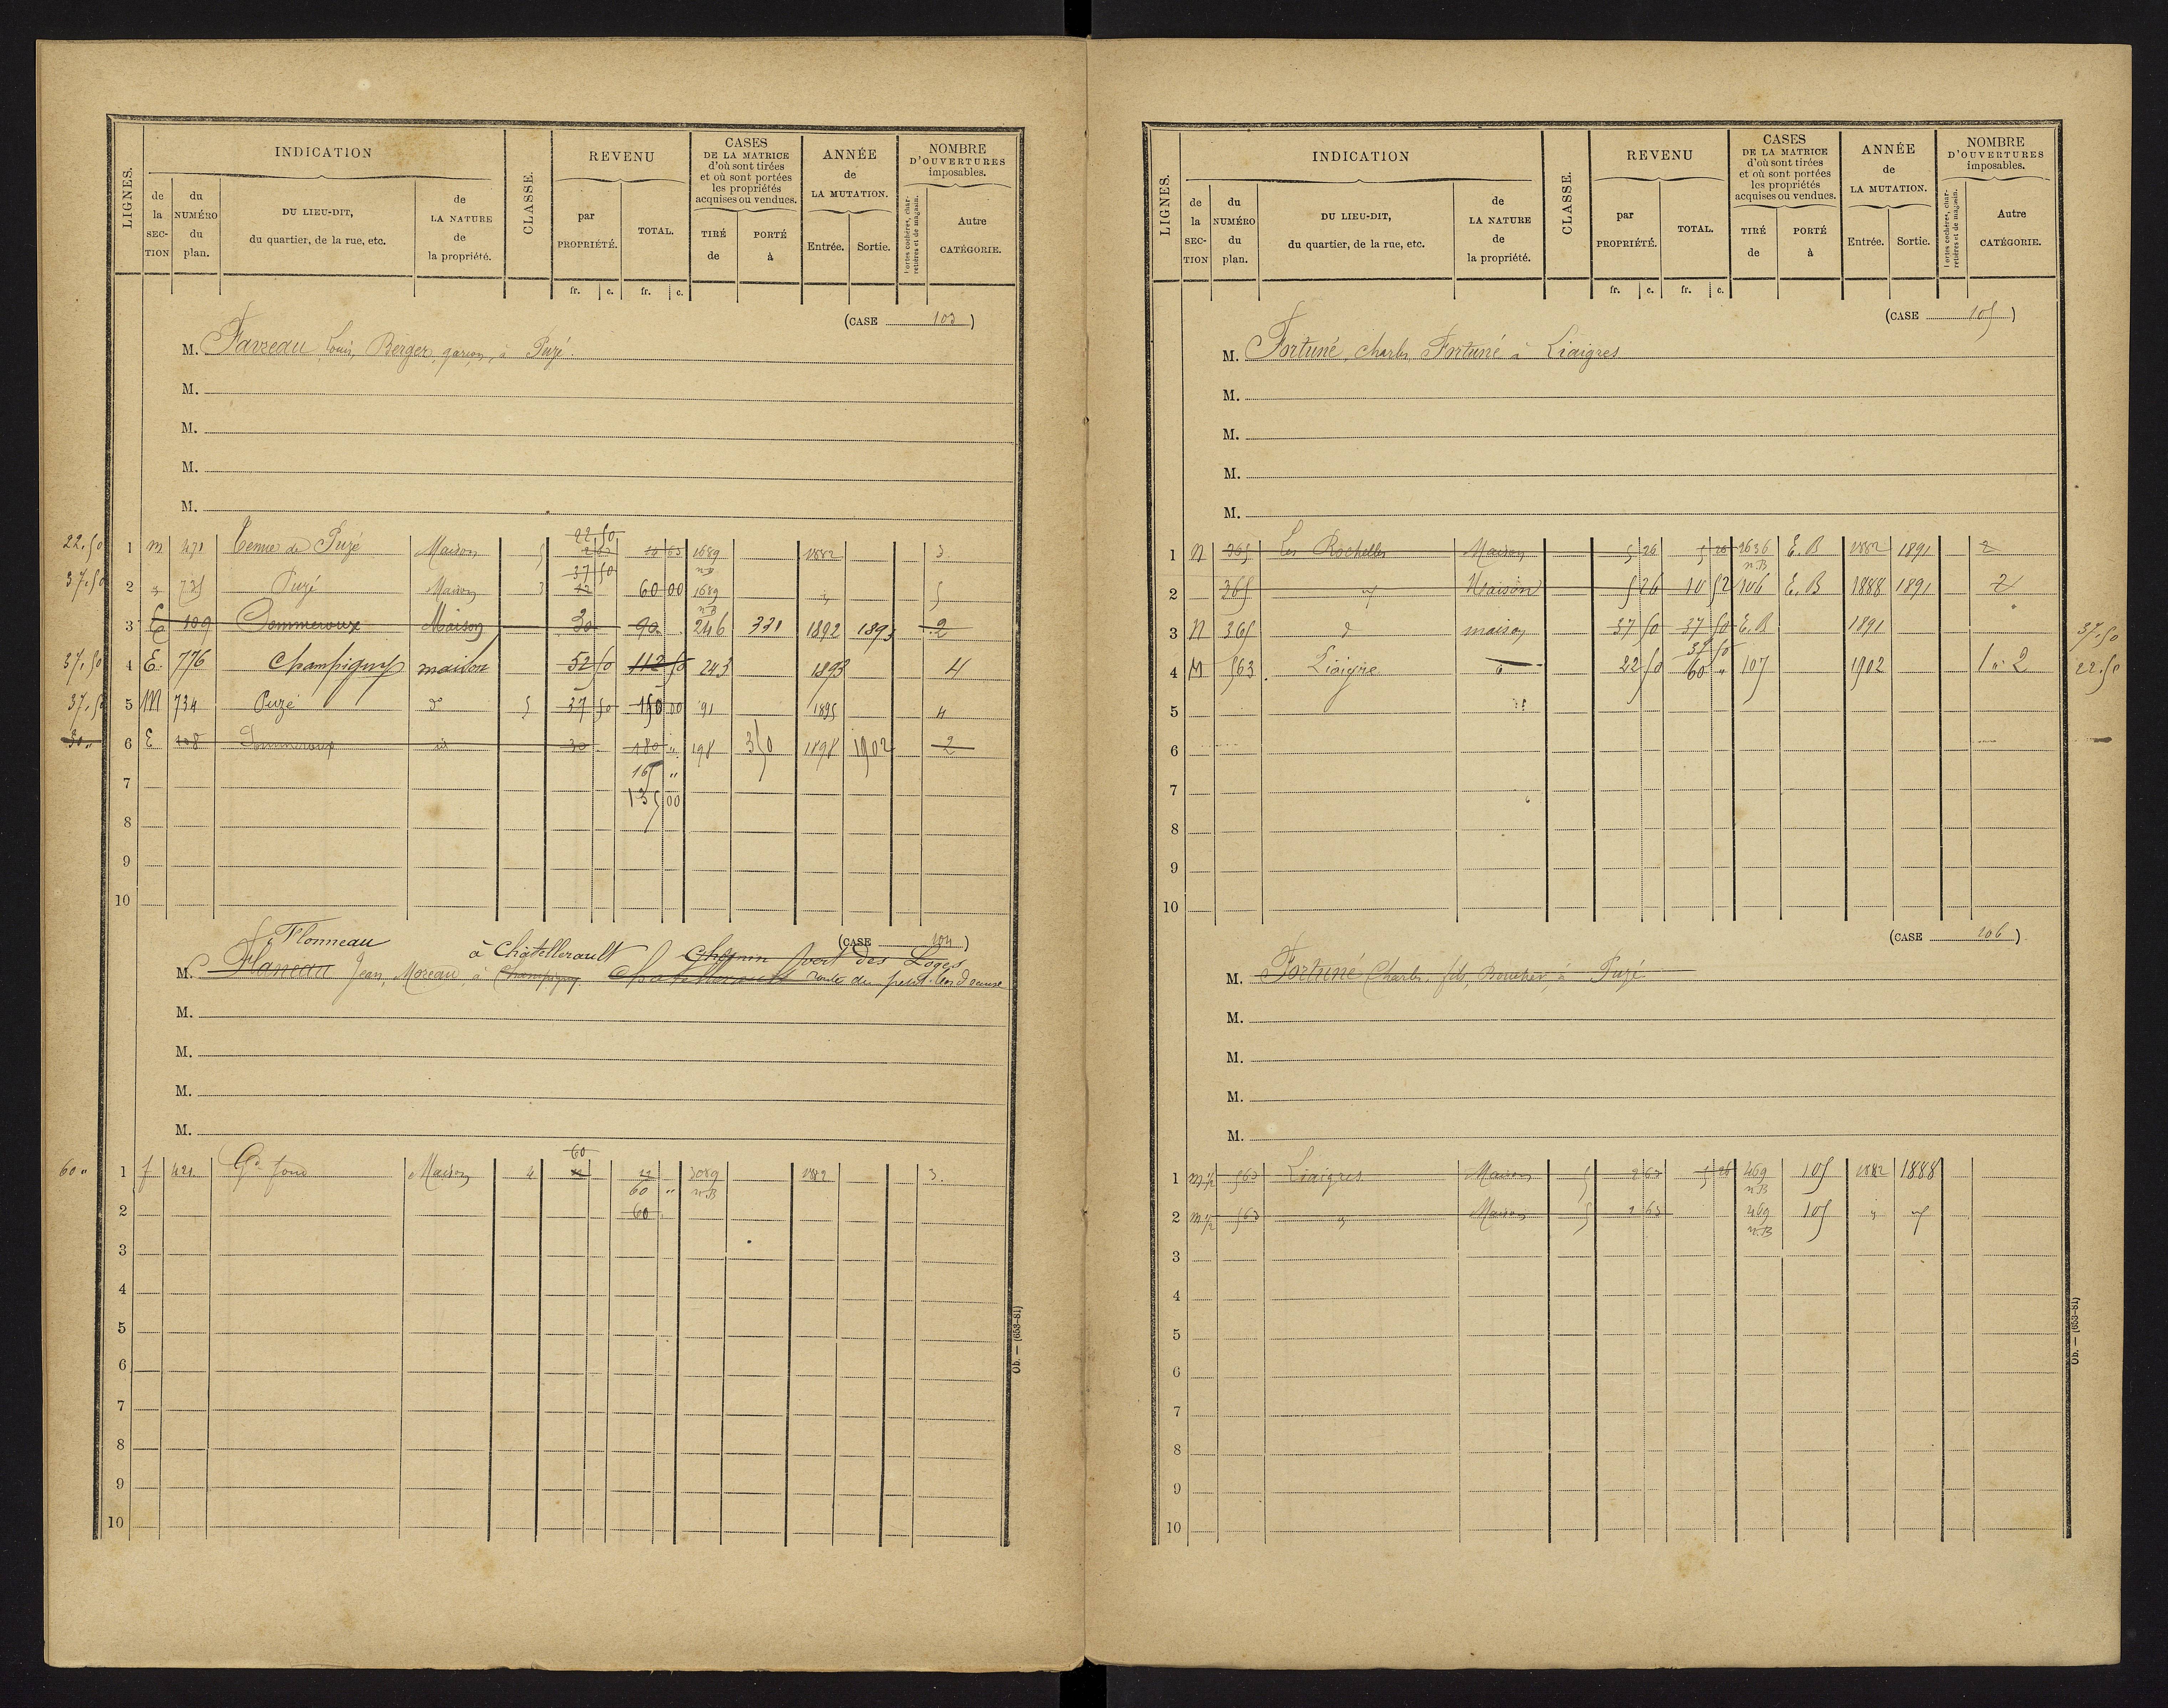 LIGNES.
INDICATION
CLASSE.
REVENU
CASES
DE LA MATRICE
d'où sont tirées
et où sont portées
les propriétés
acquises ou vendues.
ANNÉE
de
LA MUTATION.
NOMBRE
D'OUVERTURES
imposables.
de la SECTION
du NUMÉRO du plan.
DU LIEU-DIT,
du quartier, de la rue, etc.
de LA NATURE de la propriété.
par PROPRIÉTÉ.
TOTAL.
TIRÉ de
PORTÉ à
Entrée.
Sortie.
Portes cochères, charretières et de magasin.
Autre CATÉGORIE.
fr. c. fr. c.
(CASE 103)
M. Favreau Louis, Berger, garçon, à Puzé.
M.
M.
M.
M.
22.50 1 m 471 Puzé Maison 5 22 50 2 63 10 63 1689 n.B 1882 3.
37.50 2 " 735 Puzé Maison 3 37 50 12 60 00 1689 n.B " 5
3 E 109 Dommeroux Maison 30 90 246 331 1892 1893 2
37.50 4 E. 776 Champigny maison 52 50 112 50 243 1893 4
37.50 5 M 734 Puzé do 5 37 50 150 00 91 1895 4
30 " 6 E 108 Dommeroux id 30 180 " 198 350 1898 1902 2
7 165 "
135 00
8
9
10
(CASE 104)
Flonneau à Châtellerault Chemin vert des Loges
M. Flaneau Jean, Moreau, à Champigny Châtellerault route du petit
M.
M.
M.
M.
60 " 1 f 421 Gd fond Maison 4 60 12 12 3089 n.B 1882 3.
60 "
2 60
3
4
5
6
7
8
9
10
Ob. — (653-81)
LIGNES.
INDICATION
CLASSE.
REVENU
CASES
DE LA MATRICE
d'où sont tirées
et où sont portées
les propriétés
acquises ou vendues.
ANNÉE
de
LA MUTATION.
NOMBRE
D'OUVERTURES
imposables.
de la SECTION
du NUMÉRO du plan.
DU LIEU-DIT,
du quartier, de la rue, etc.
de LA NATURE de la propriété.
par PROPRIÉTÉ.
TOTAL.
TIRÉ de
PORTÉ à
Entrée.
Sortie.
Portes cochères, charretières et de magasin.
Autre CATÉGORIE.
fr. c. fr. c.
(CASE 105)
M. Fortuné, Charles, Fortuné à Liaigres
M.
M.
M.
M.
1 N 365 Les Rochelles Maison 5 26 5 26 2636 n.B E.B 1882 1891 2
2 365 " Maison 5 26 10 52 106 E.B 1888 1891 2
3 N 365 d maison 37 50 37 50 E.B 1891 37.50
4 M 563 Liaigre d 22 50 37 50 60 " 107 1902 1 " 2 22.50
5
6
7
8
9
10
(CASE 106)
M. Fortuné Charles fils, Boucher, à Puzé
M.
M.
M.
M.
1 m 1/2 563 Liaigres Maison 5 2 63 5 26 469 n.B 105 1882 1888
2 m 1/2 563 " Maison 5 2 63 469 n.B 105 " "
3
4
5
6
7
8
9
10
Ob. — (653-81)